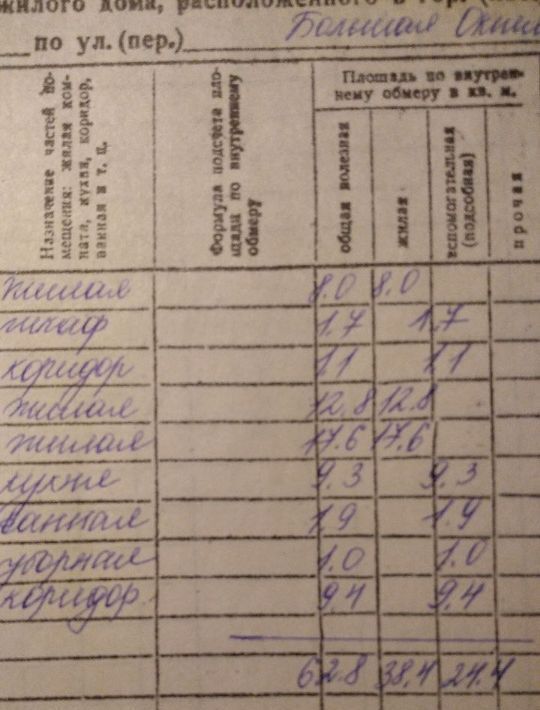 жилого дома, расположенного в гор.
по ул. (пер.) Большая
Назначение частей по-
мещения: жилая ком-
ната, кухня, коридор,
ванная и т. п.
Формула подсчета пло-
щади по внутреннему
обмеру
Площадь по внутрен-
нему обмеру в кв. м.
общая полезная
жилая
вспомогательная
(подсобная)
прочая
жилая 8.0 8.0
шкаф 1.7 1.7
коридор 1.1 1.1
жилая 12.8 12.8
жилая 17.6 17.6
кухня 9.3 9.3
ванная 1.9 1.9
уборная 1.0 1.0
коридор 9.4 9.4
62.8 38.4 24.4